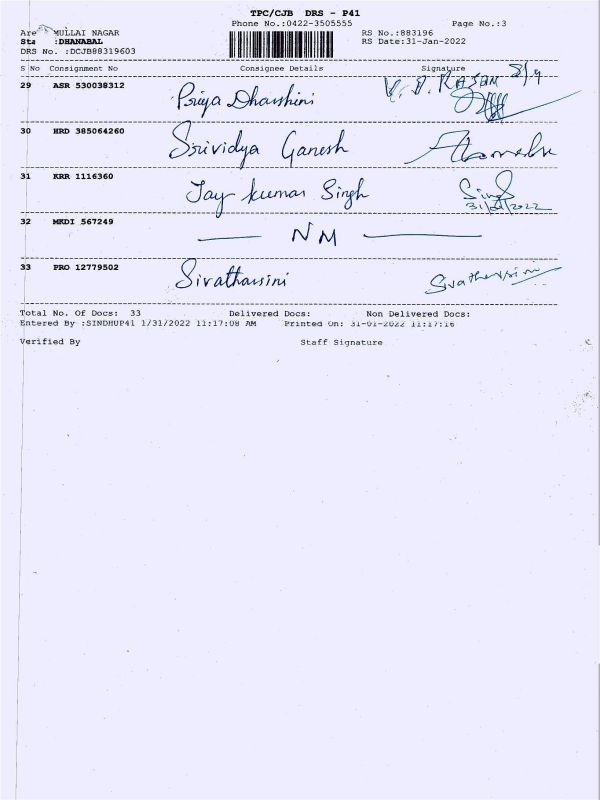 TPC/CJB DRS - P41
Phone No.:0422-3505555 Page No.:3
Are MULLAI NAGAR RS No.:883196
Sta :DHANABAL RS Date:31-Jan-2022
DRS No. :DCJB88319603
S No Consignment No Consignee Details Signature
29 ASR 530038312 Priya Dharshini V. D. RAJAM
30 HRD 385064260 Srividya Ganesh
31 KRR 1116360 Jay kumar Singh Singh
31/01/2022
32 MKDI 567249 NM
33 PRO 12779502 Sivatharsini Sivatharsini
Total No. Of Docs: 33 Delivered Docs: Non Delivered Docs:
Entered By :SINDHUP41 1/31/2022 11:17:08 AM Printed On: 31-01-2022 11:17:16
Verified By Staff Signature